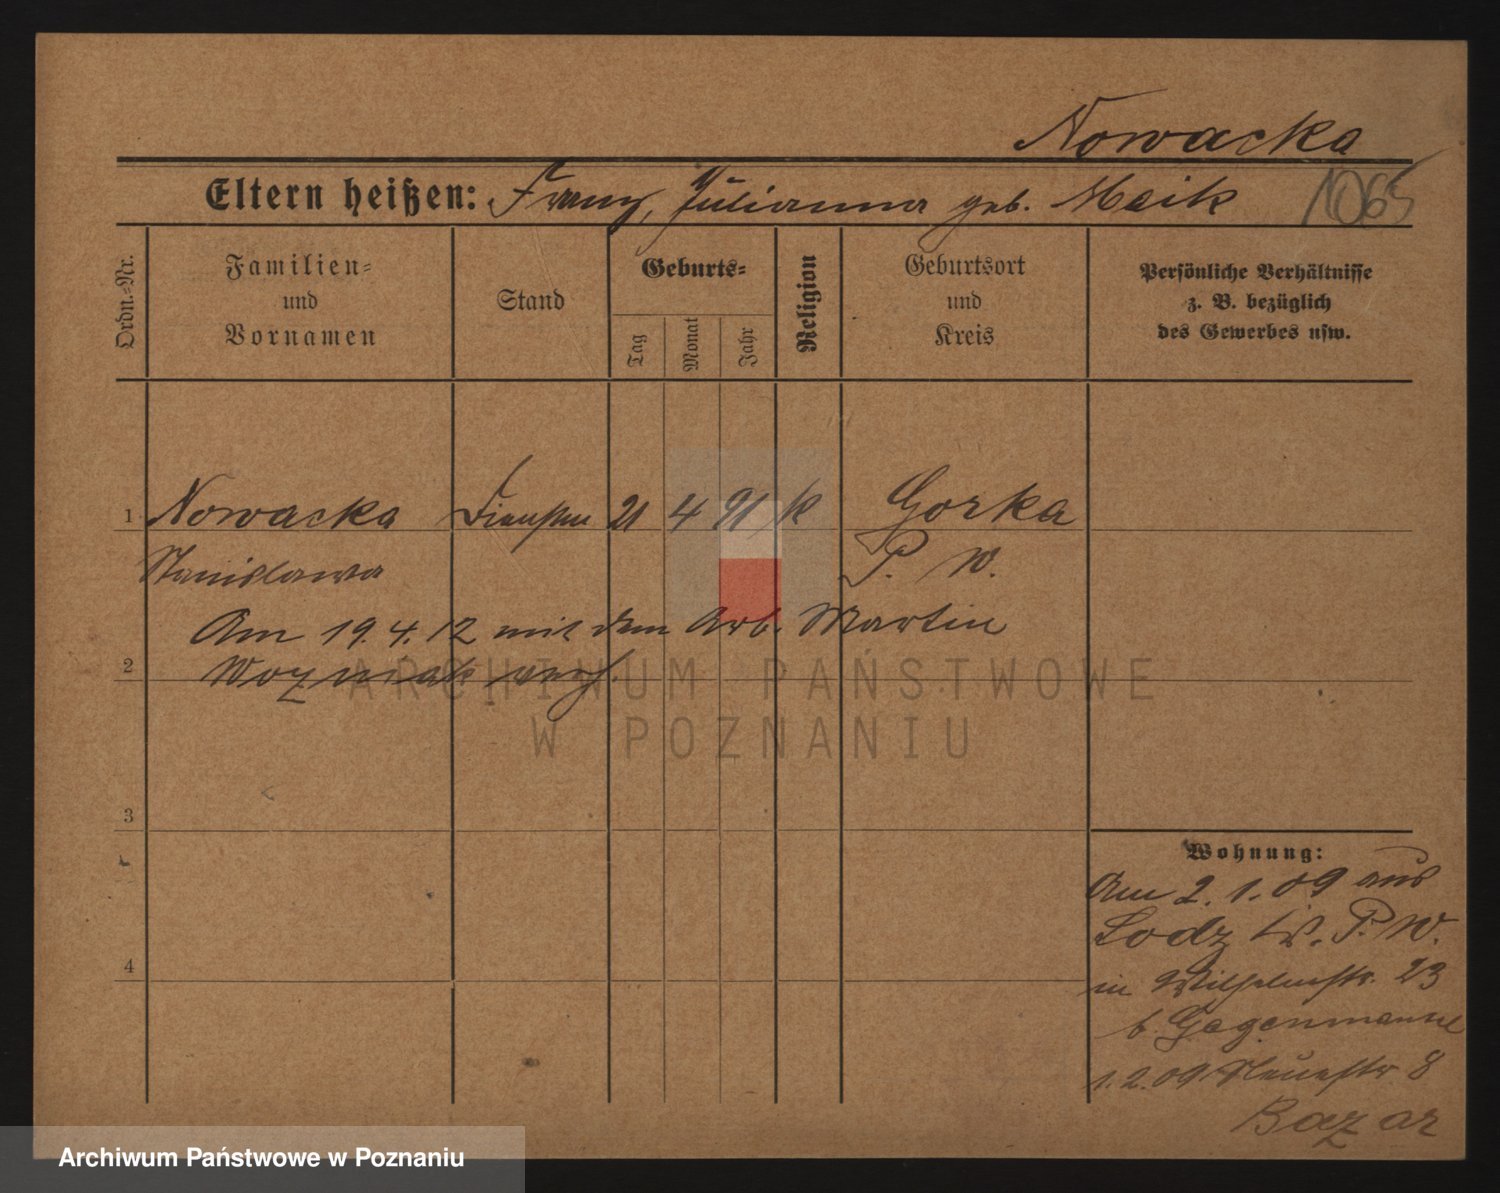 Nowacka
Eltern heißen: Franz, Julianna geb. Maik 1065
Ordn.-Nr.
Familien-
und
Vornamen
Stand
Geburts-
Tag
Monat
Jahr
Religion
Geburtsort
und
Kreis
Persönliche Verhältnisse
z. B. bezüglich
des Gewerbes usw.
1 Nowacka 21 4 91 k Gorka
Stanislawa P. W.
Am 19.4.12 mit dem Arb. Martin
2 Wozniak verh.
ARCHIWUM PAŃSTWOWE
W POZNANIU
3
Wohnung:
Am 2.1.09 aus
Lodz Kr. P. W.
4
in Wilhelmstr. 23
b. Gegenmantel
1.2.09 Neuestr 8
Bazar
Archiwum Państwowe w Poznaniu